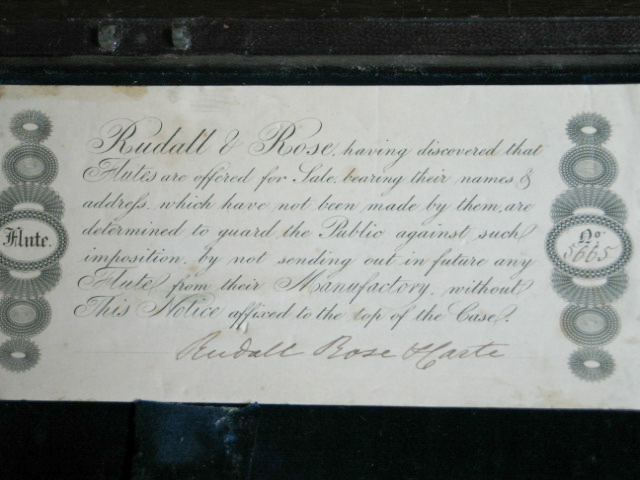 Rudall & Rose, having discovered that
Flutes are offered for Sale, bearing their names &
addreſs, which have not been made by them, are
determined to guard the Public against such
imposition, by not sending out in future any
Flute from their Manufactory, without
This Notice affixed to the top of the Case.
Rudall Rose & Carte
Flute.
No.
5665